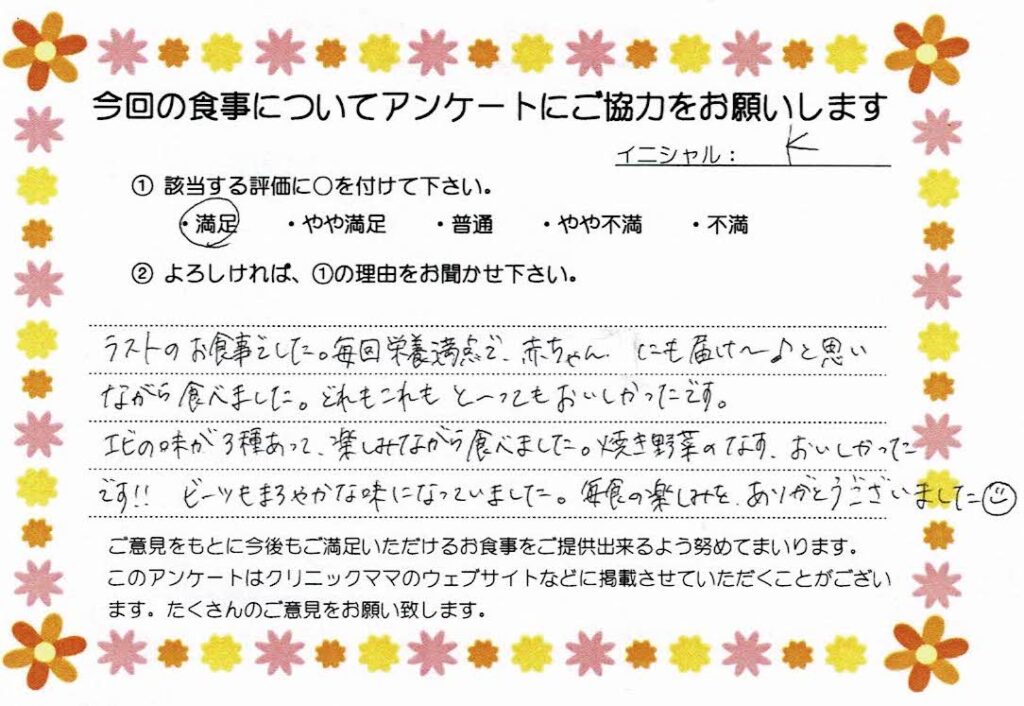 今回の食事についてアンケートにご協力をお願いします
イニシャル： K
① 該当する評価に○を付けて下さい。
・満足 ・やや満足 ・普通 ・やや不満 ・不満
② よろしければ、①の理由をお聞かせ下さい。
ラストのお食事でした。毎回栄養満点で、赤ちゃんにも届け〜♪と思い
ながら食べました。どれもこれもと〜ってもおいしかったです。
エビの味が3種あって、楽しみながら食べました。焼き野菜のなす、おいしかった
です!! ビーツもまろやかな味になっていました。毎食の楽しみを、ありがとうございました☺
ご意見をもとに今後もご満足いただけるお食事をご提供出来るよう努めてまいります。
このアンケートはクリニックママのウェブサイトなどに掲載させていただくことがござい
ます。たくさんのご意見をお願い致します。